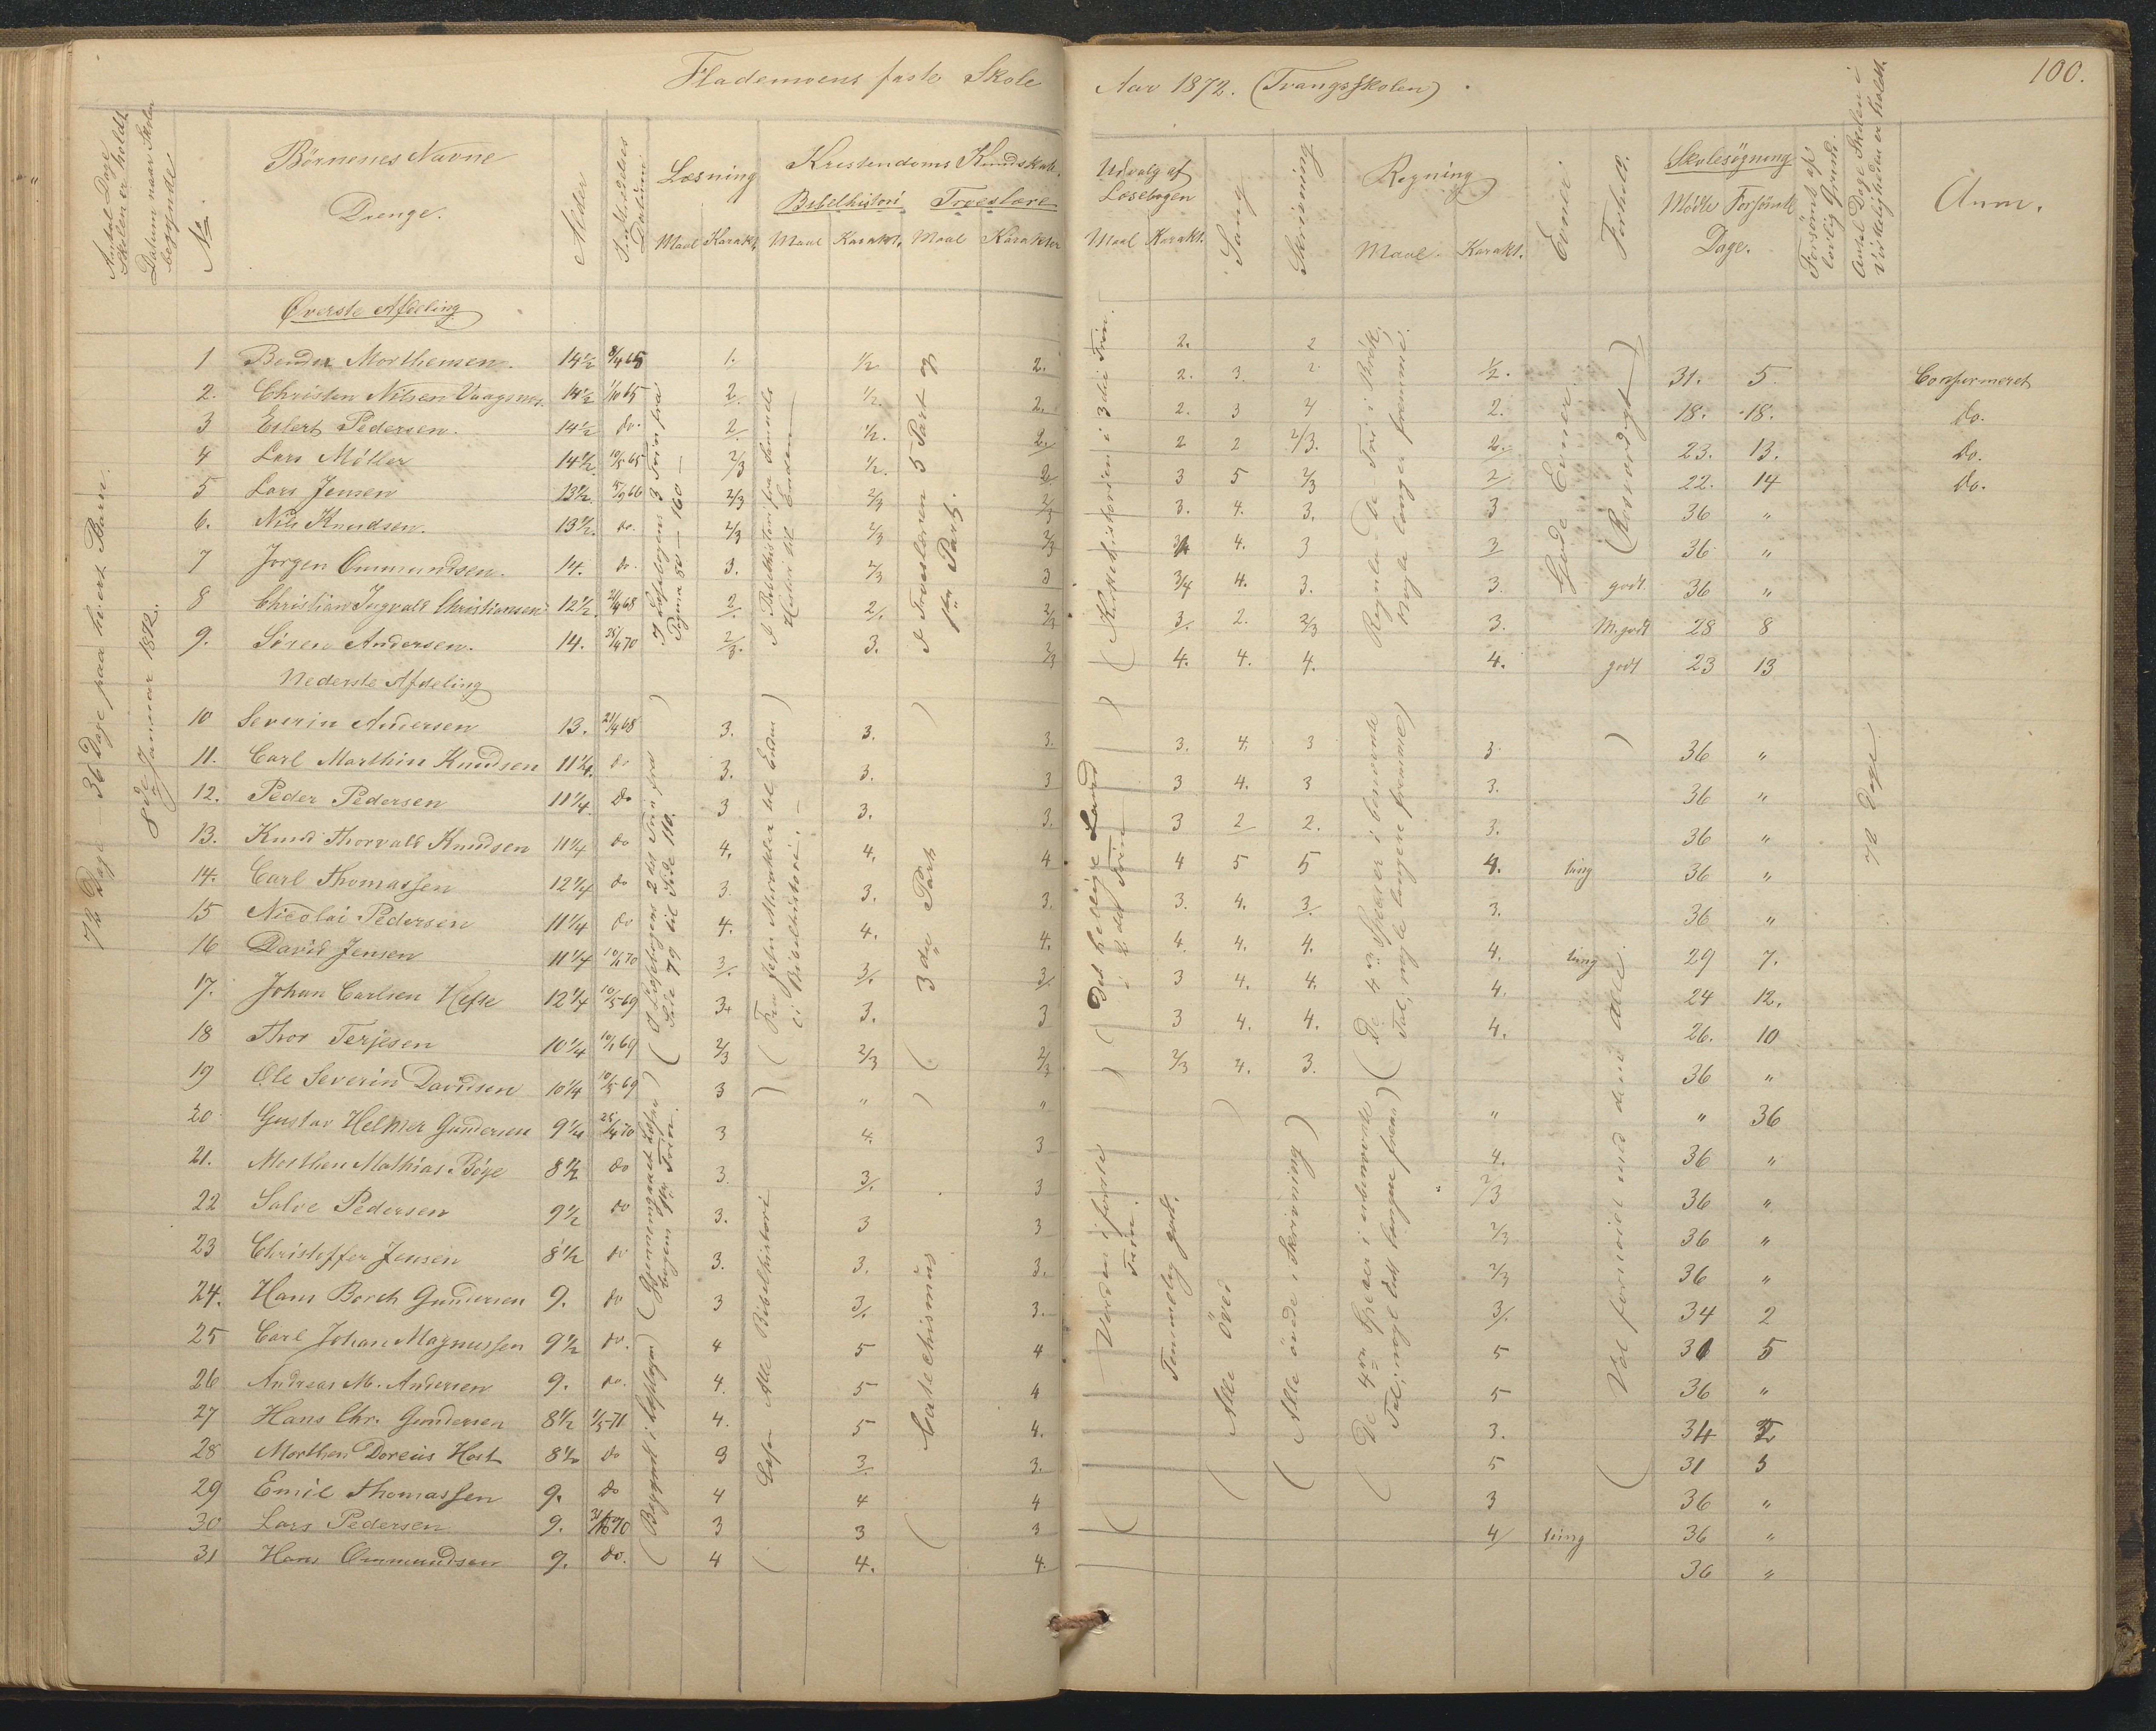 Flademoens faste Skole Aar 1872. (Trangsskolen). 100.
Antal Dage Skolen er holdt
Datum naar Skolen begynde
No.
Börnenes Navne
Drenge.
Alder
Indtrædelses Datum
Læsning
Maal Karakt.
Kristendoms Kundskab.
Bibelhistori Troeslære
Maal Karakt. Maal Karakter
Udvalg af Læsebogen
Maal Karakt.
Sang
Skrivning
Regning
Maal. Karakt.
Evner
Forhold.
Skolesøgning
Mödte Forsömte
Dage.
Forsömt af lovlig Grund.
Antal Dage Skolen i Virkeligheden er holdt.
Anm.
72 Dage – 36 Dage paa hvert Barn.
8de Januar 1872.
Øverste Afdeling
1 Morthensen. 14½ 8/4 65 1. ½ 2. 2. 2 ½. 31. 5. Confirmeret
2. Christen Nilsen 14½ 1/10 65 2. ½. 2. 2. 3. 2 2. 18. 18. do.
3 Eilert Pedersen. 14½ do. 2/. ½. 2/. 2. 3 2. 23. 13. do.
4 Lars Möller 14½. 10/5 65 2/3 ½. 2 2 2/3. 2 22. 14 do.
5 Lars Jensen 13½. 5/9 66 2/3 2/3 2/3 3 5 2/3 3 36 "
6. Nils Knudsen. 13½. do. 2/3 2/3 2/3 3. 4. 3. 3 36 "
7 Jörgen Ommundsen. 14. do. 3. 2/3 3 4. 3 3. godt 36 "
8 Christian Ingvald Christiansen 12½. 21/4 68 2/. 2/. 2/3 3/4 4. 3. 3. M. godt 28 8
9. Sören Andersen. 14. 25/4 70 2/3. 3. 2/3 3/. 2. 2/3 4. godt 23 13
4. 4. 4.
I Læsebogens 3 Trin fra Pagina 50 – 160 –
I Bibelhistori fra Samuels Histori til Enden
I Troeslæren 5 Part og Part.
(Kirkehistorien i 3die Trin.
Regula De Tri i Brök, nogle længer fremme.
Gode Evner.
(Rosværdigt)
Nederste Afdeling
10 Severin Andersen 13. 21/4 68 3. 3. 3. 3. 4. 3 3 36 "
11. Carl Marthin Knudsen 11¼. do 3. 3. 3 3 4. 3 3. 36 "
12. Peder Pedersen 11¼. do 3 3. 3. 3 2 2. 3. 36 "
13. Knud Thorvald Knudsen 11¼ do 4. 4. 4 4 5 5 4. ting 36 "
14. Carl Thomassen 12¼ do 3. 3. 3. 3. 4. 3. 3. 36 "
15 Nicolai Pedersen 11¼ do 4. 4. 4. 4. 4. 4. 4. 29 7.
16 David Jensen 11¼ 3/. 3/. 3/ 3 4. 4. 4. 24 12.
17. Johan Carlsen Hefte 12¼ 10/5 69 3+ 3. 3 3 4. 4. 4. 26. 10
18 Thor Terjesen 10¼ 2/3 2/3 2/3 2/3 4. 3. 36 "
19 Ole Severin Davidsen 10¼ 10/5 69 3 " " " " 36
20 Gustav Helmer Gundersen 9¼ 25/4 70 3 4. 3 4. 36 "
21. Morthen Mathias Böye 8½ do 3. 3/. 3 2/3 36 "
22 Salve Pedersen 9½ do 3. 3 3 2/3 36 "
23 Christoffer Jensen 8½ do 3. 3. 3. 2/3 36 "
24. Hans Borch Gundersen 9. do 3 3/. 3. 3/. 34 2
25 Carl Johan Magnussen 9½ do. 4 5 4 5 31 5
26 Andreas M. Andersen 9. do. 4. 5 4 5 36 "
27 Hans Chr. Gundersen 8½ 4. 5 4. 3. 34
28 Morthen Doreus Host 8½ do 3 3/. 3. 5 31
29 Emil Thomassen 9. do 4 4 4 3 36 "
30 Lars Pedersen 9. 3 3 3 4/ 36 "
31 Hans Ommundsen 9. do. 4 4. 4. 36 "
(I Læsebogens 2det Trin fra Side 79 til Side 110.
(Gjennemgaaet Læsebogens 1ste Trin.
(Begyndt i Læsebogen)
(Fra Jesu Mirakler til Enden i Bibelhistori. –)
Læser Alle Bibelhistori
3die Part
Catechismus
(Det hellige Land i 2det Trin)
Verden i förste Trin.
Temmelig godt.
Alle övet
(Alle övede i Skrivning)
(De 4re Spesier i benævnte Tal, nogle længere fremme)
(De 4re Spesier i ubenævnte Tal; nogle lidt længre frem)
Vel fornöiet med dem alle.
72 Dage